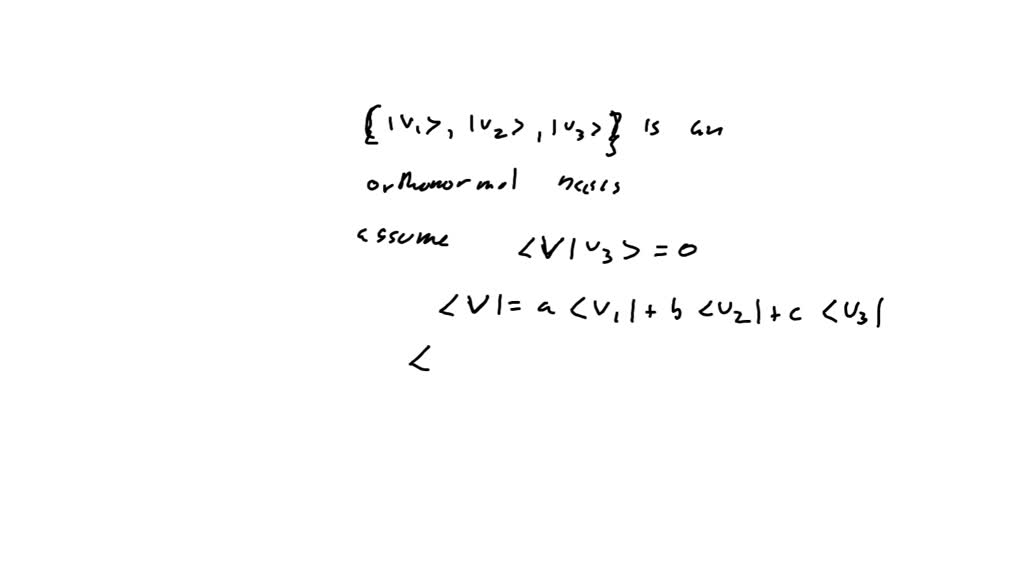 {|v₁>, |v₂>, |v₃>} is an
orthonormal basis
assume <V|v₃> = 0
<V| = a <v₁| + b <v₂| + c <v₃|
<